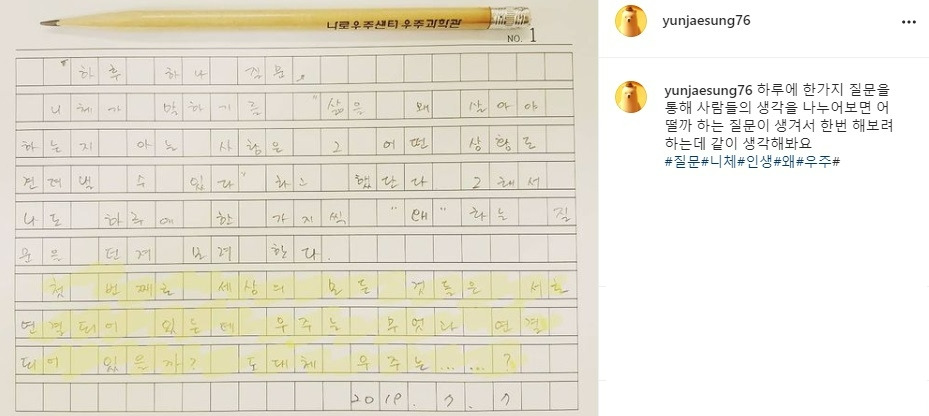 나로우주센터 우주과학관
NO. 1
"하루 하나 질문"
니체가 말하기를 "삶은 왜 살아야
하는지 아는 사람은 그 어떤 상황도
견뎌낼 수 있다" 라고 했단다 그래서
나도 하루에 한 가지씩 "왜" 라는 질
문을 던져 보려 한다.
첫 번째로 세상의 모든 것들은 서로
연결되어 있는데 우주는 무엇과 연결
되어 있을까? 도대체 우주는......?
2019. 7. 7
yunjaesung76
yunjaesung76 하루에 한가지 질문을
통해 사람들의 생각을 나누어보면 어
떨까 하는 질문이 생겨서 한번 해보려
하는데 같이 생각해봐요
#질문#니체#인생#왜#우주#